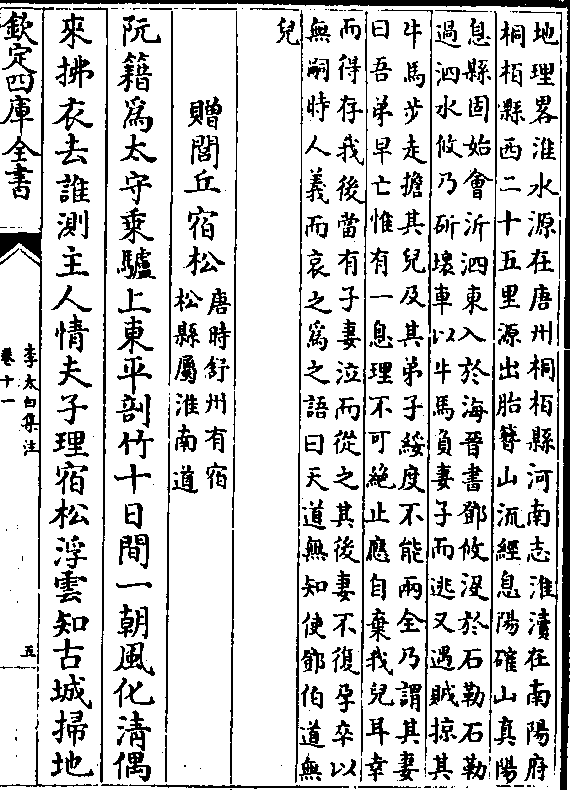 地理畧淮水源在唐州桐栢縣河南志淮瀆在南陽府
桐栢縣西二十五里源出胎簪山流經息陽確山真陽
息縣固始會沂泗東入於海晉書鄧攸没於石勒石勒
過泗水攸乃斫壞車以牛馬負妻子而逃又遇賊掠其
牛馬步走擔其兒及其弟子綏度不能兩全乃謂其妻
曰吾弟早亡惟有一息理不可絶止應自棄我兒耳幸
而得存我後當有子妻泣而從之其後妻不復孕卒以
無嗣時人義而哀之為之語曰天道無知使鄧伯道無
兒
贈閭丘宿松
唐時舒州有宿
松縣屬淮南道
阮籍為太守乘驢上東平剖竹十日間一朝風化清偶
來拂衣去誰測主人情夫子理宿松浮雲知古城掃地
欽定四庫全書
李太白集注
卷十一
五